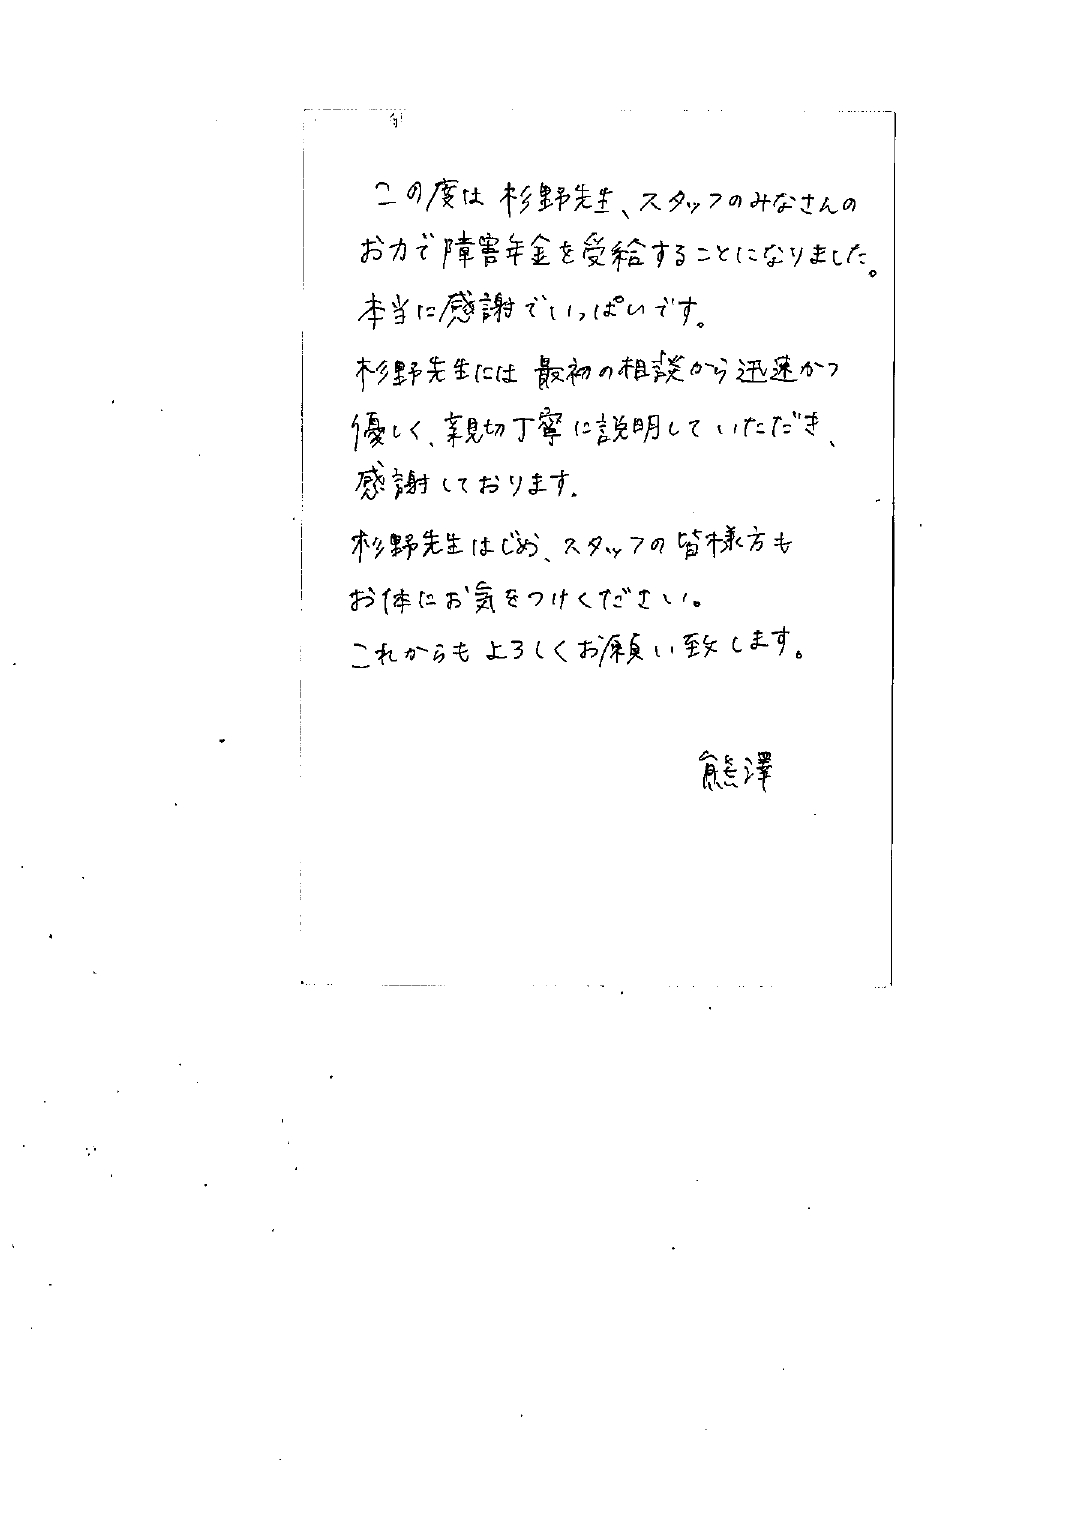 この度は杉野先生、スタッフのみなさんの
お力で障害年金を受給することになりました。
本当に感謝でいっぱいです。
杉野先生には最初の相談から迅速かつ
優しく、親切丁寧に説明していただき、
感謝しております。
杉野先生はじめ、スタッフの皆様方も
お体にお気をつけください。
これからもよろしくお願い致します。
熊澤